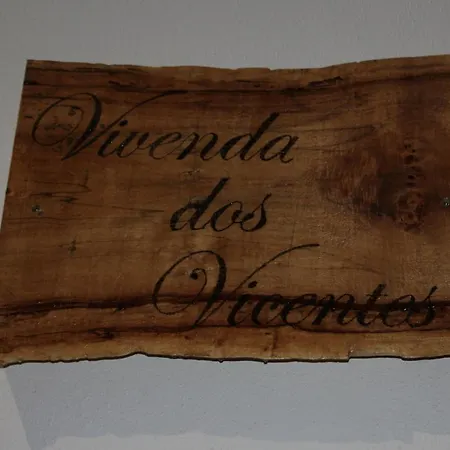 Vivenda
dos
Vicentes